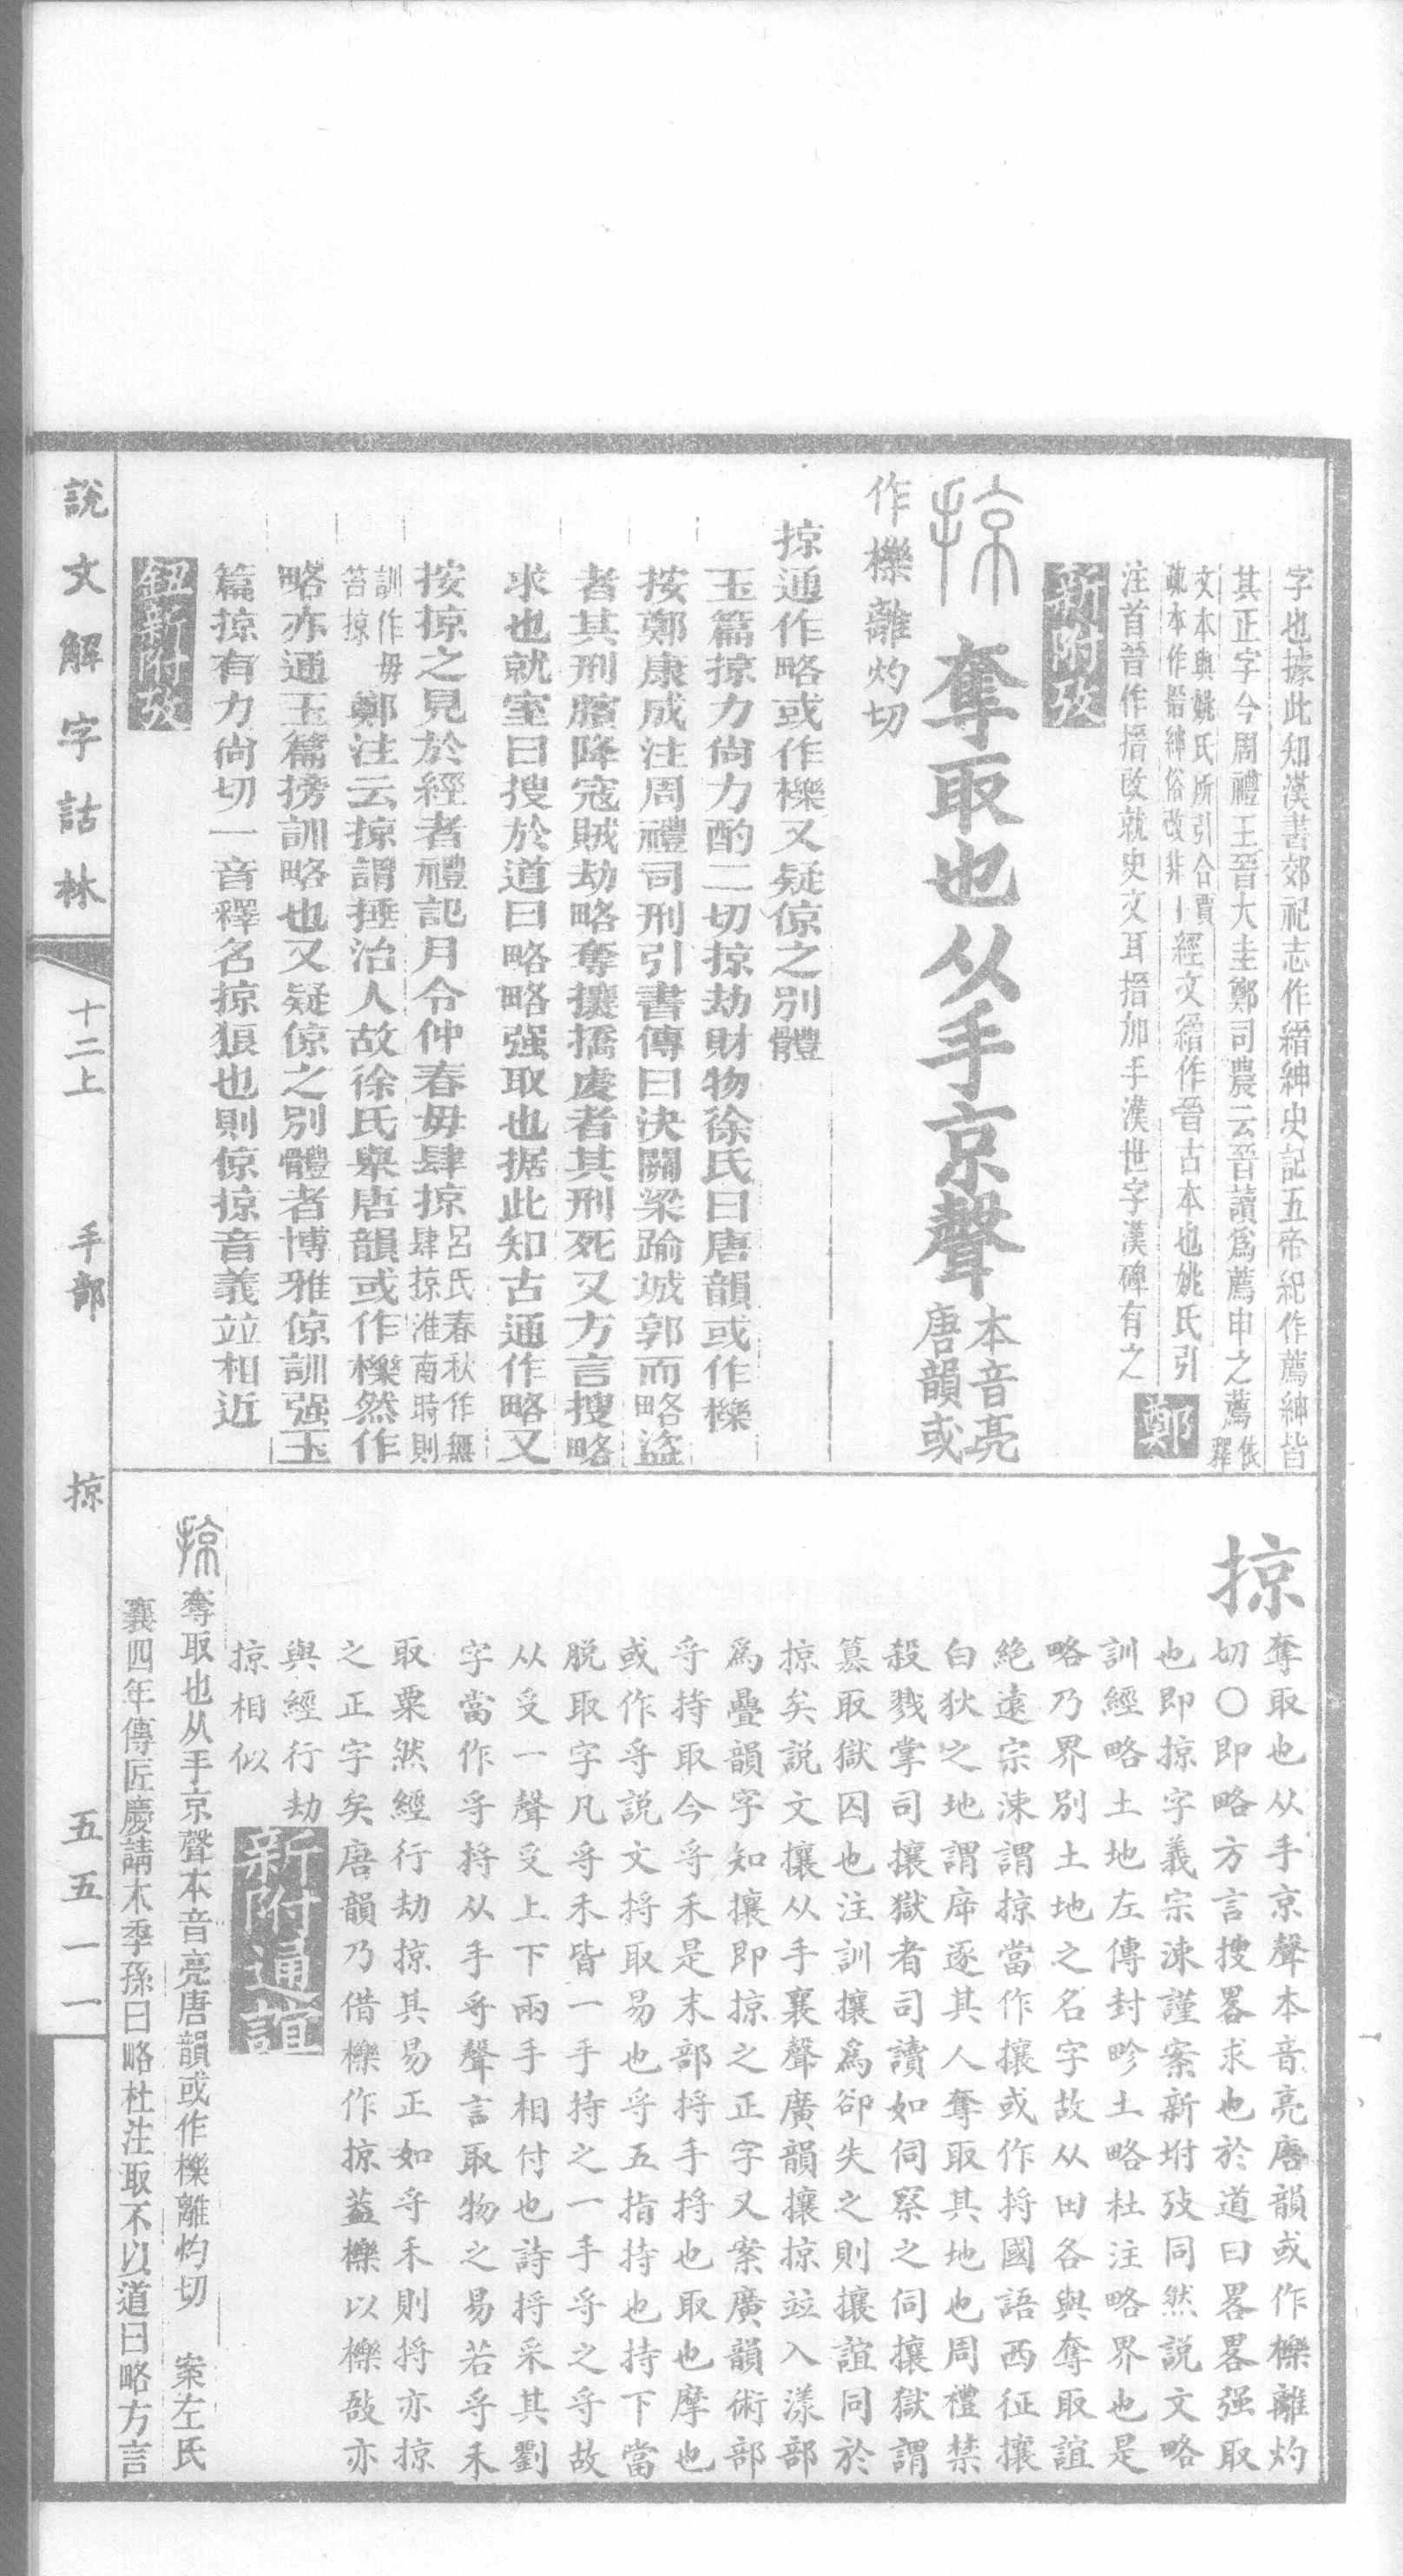 字也據此知漢書郊祀志作縉紳史記五帝紀作薦紳皆
其正字今周禮王晉大圭鄭司農云晉讀爲薦申之薦依釋
文本與姚氏所引合賈
疏本作搢紳俗改非
經文縉作晉古本也姚氏引
注首晉作搢改就史文耳搢加手漢世字漢碑有之
鄭
新附攷
掠
奪取也从手京聲本音亮唐韻或
作擽離灼切
掠通作略或作擽又疑倞之別體
玉篇掠力尙力酌二切掠劫財物徐氏曰唐韻或作擽
按鄭康成注周禮司刑引書傳曰決關梁踰城郭而略盜
者其刑臏降寇賊劫略奪攘撟虔者其刑死又方言搜略
求也就室曰搜於道曰略略强取也据此知古通作略又
按掠之見於經者禮記月令仲春毋肆掠呂氏春秋作無肆掠淮南時則
訓作毋笞掠鄭注云掠謂捶治人故徐氏㮣唐韻或作擽然作
略亦通玉篇搒訓略也又疑倞之別體者博雅倞訓强玉
篇掠有力尙切一音釋名掠狼也則倞掠音義竝相近
鈕新附攷
掠
奪取也从手京聲本音亮唐韻或作擽離灼
切〇即略方言搜畧求也於道曰畧畧强取
也即掠字義宗涑謹案新坿攷同然説文略
訓經略土地左傳封畛土略杜注略界也是
略乃界別土地之名字故从田各與奪取誼
絶遠宗涑謂掠當作攘或作捋國語西征攘
白狄之地謂庰逐其人奪取其地也周禮禁
殺戮掌司攘獄者司讀如伺察之伺攘獄謂
簒取獄囚也注訓攘爲卻失之則攘誼同於
掠矣説文攘从手襄聲廣韻攘掠竝入漾部
爲疊韻字知攘即掠之正字又案廣韻術部
寽持取今寽禾是末部捋手捋也取也摩也
或作寽説文捋取易也寽五指持也持下當
脱取字凡寽禾皆一手持之一手寽之寽故
从𠬪一聲𠬪上下兩手相付也詩捋采其劉
字當作寽捋从手寽聲言取物之易若寽禾
取粟然經行劫掠其易正如寽禾則捋亦掠
之正字矣唐韻乃借擽作掠葢擽以擽敔亦
與經行劫
掠相似
新附通誼
掠
奪取也从手京聲本音亮唐韻或作擽離灼切　案左氏
襄四年傳匠慶請木季孫曰略杜注取不以道曰略方言
說文解字詁林
十二上
手部
掠
五五一一